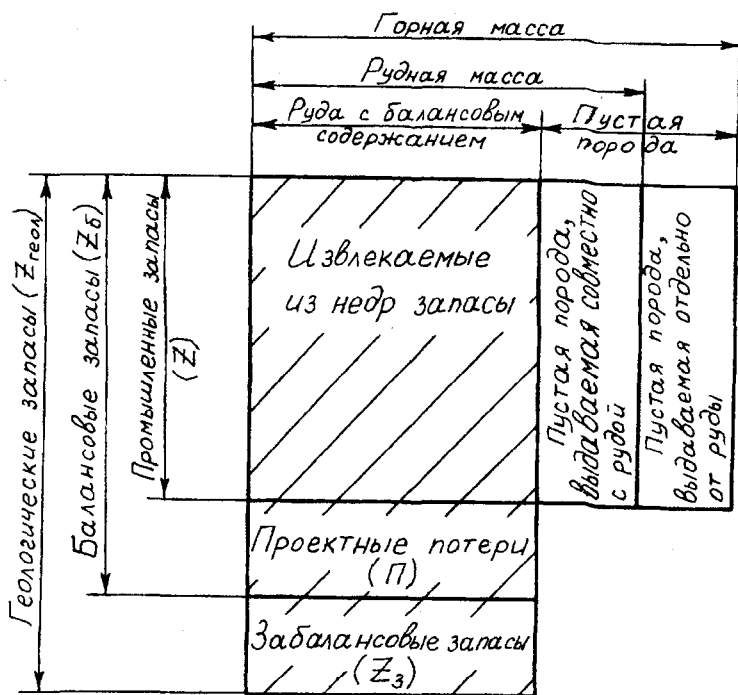 Горная масса
Рудная масса
Руда с балансовым
содержанием
Пустая
порода
Геологические запасы (Zгеол)
Балансовые запасы (Zб)
Промышленные запасы
(Z)
Извлекаемые
из недр запасы
Пустая порода,
выдаваемая совместно
с рудой
Пустая порода,
выдаваемая отдельно
от руды
Проектные потери
(П)
Забалансовые запасы
(Zз)